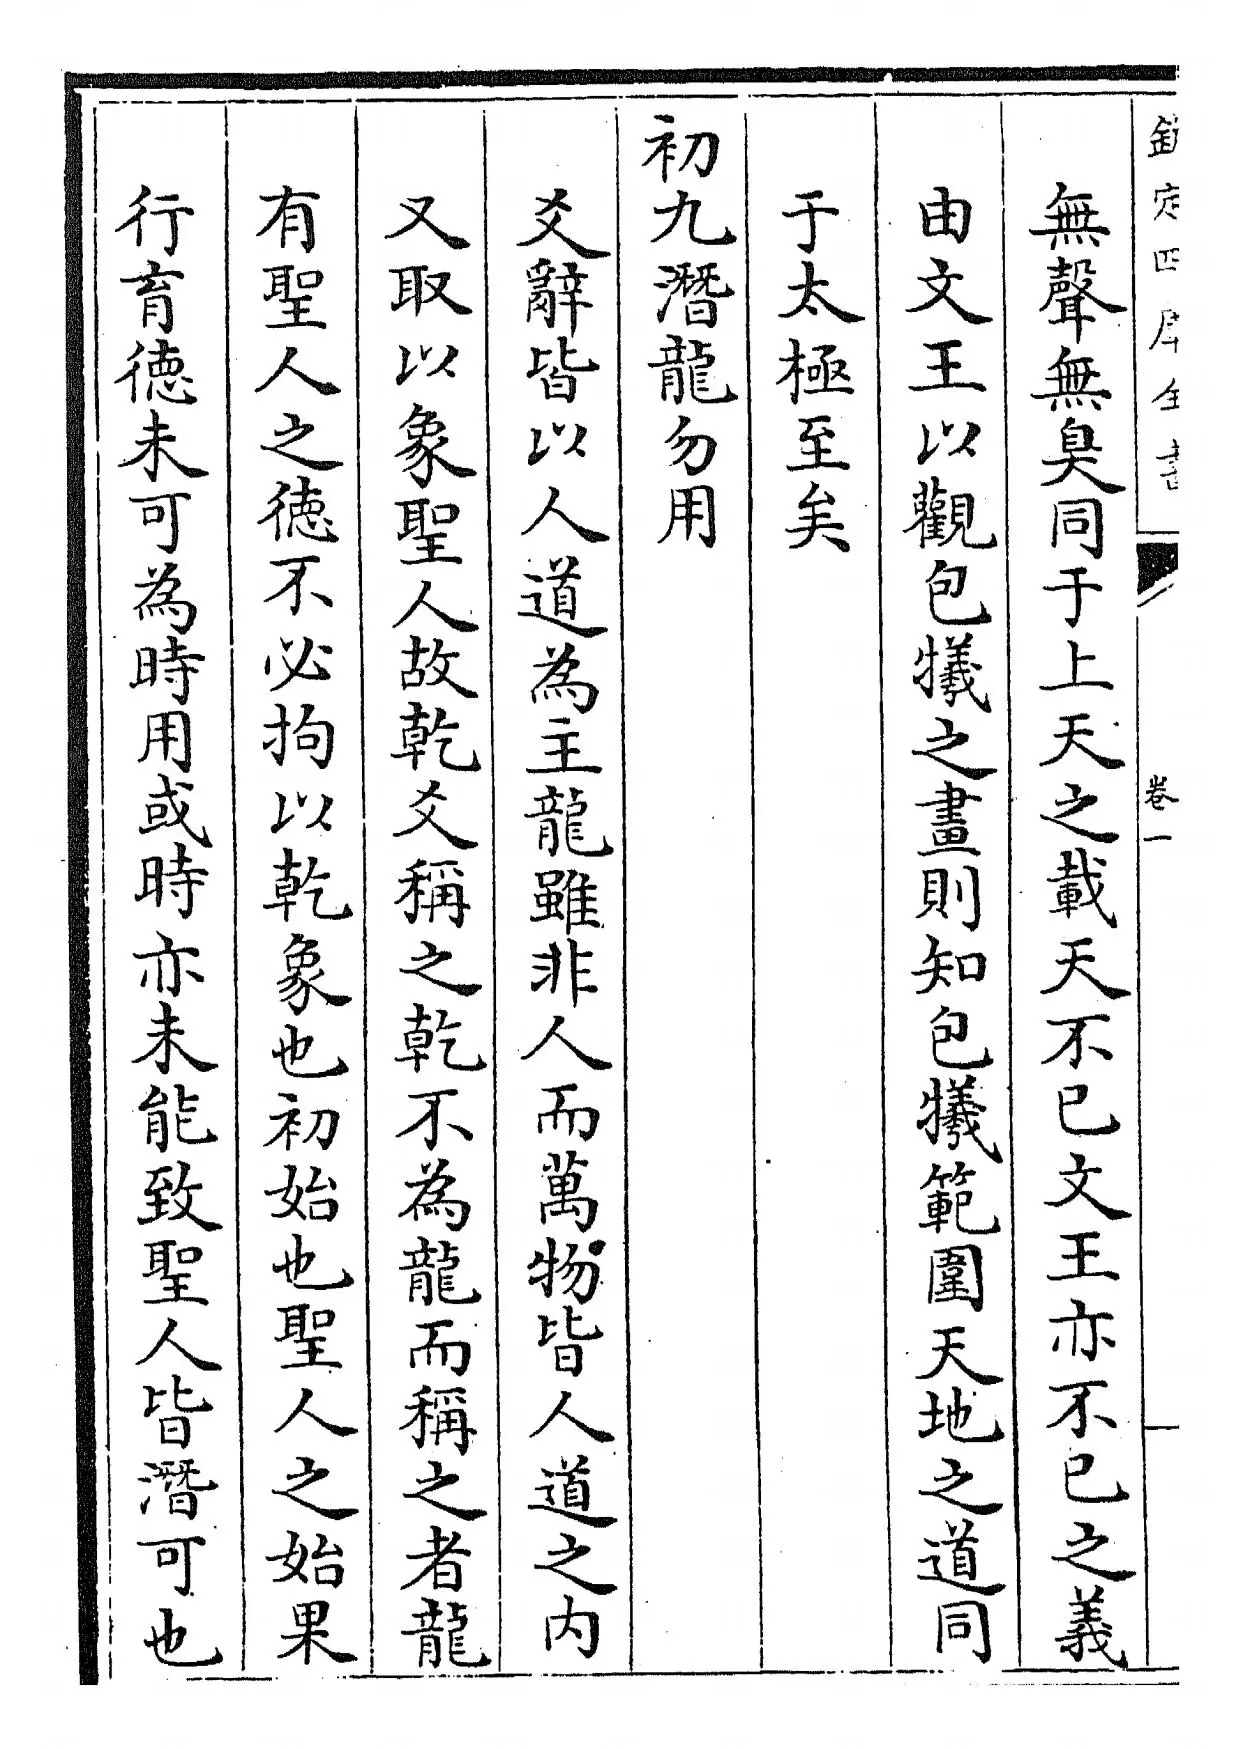 欽定四庫全書
卷一
無聲無臭同于上天之載天不已文王亦不已之義
由文王以觀包犧之畫則知包犧範圍天地之道同
于太極至矣
初九潛龍勿用
爻辭皆以人道為主龍雖非人而萬物皆人道之内
又取以象聖人故乾爻稱之乾不為龍而稱之者龍
有聖人之德不必拘以乾象也初始也聖人之始果
行育德未可為時用或時亦未能致聖人皆潛可也